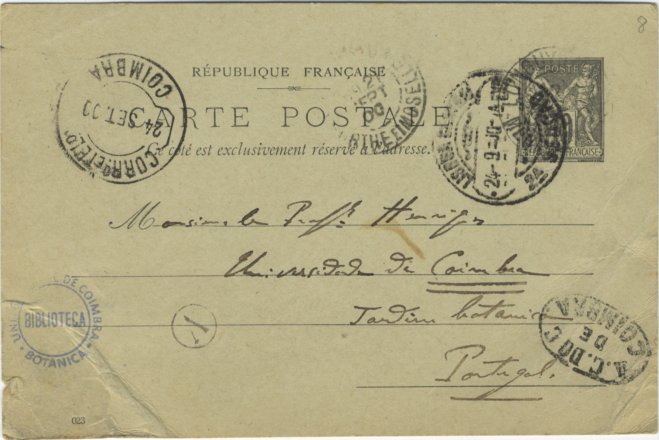 8
RÉPUBLIQUE FRANÇAISE
CARTE POSTALE
Ce côté est exclusivement réservé à l'adresse.
POSTE
FRANÇAISE
CORRO E TELO
COIMBRA
24 SET. 00
LISBOA
24-9-00
24
Monsieur le Profr Henriques
Universidade de Coimbra
Jardim botanico
Portugal.
A. C. DO C.
DE
COIMBRA
1
DE COIMBRA
BIBLIOTECA
BOTANICA
UNIV.
023